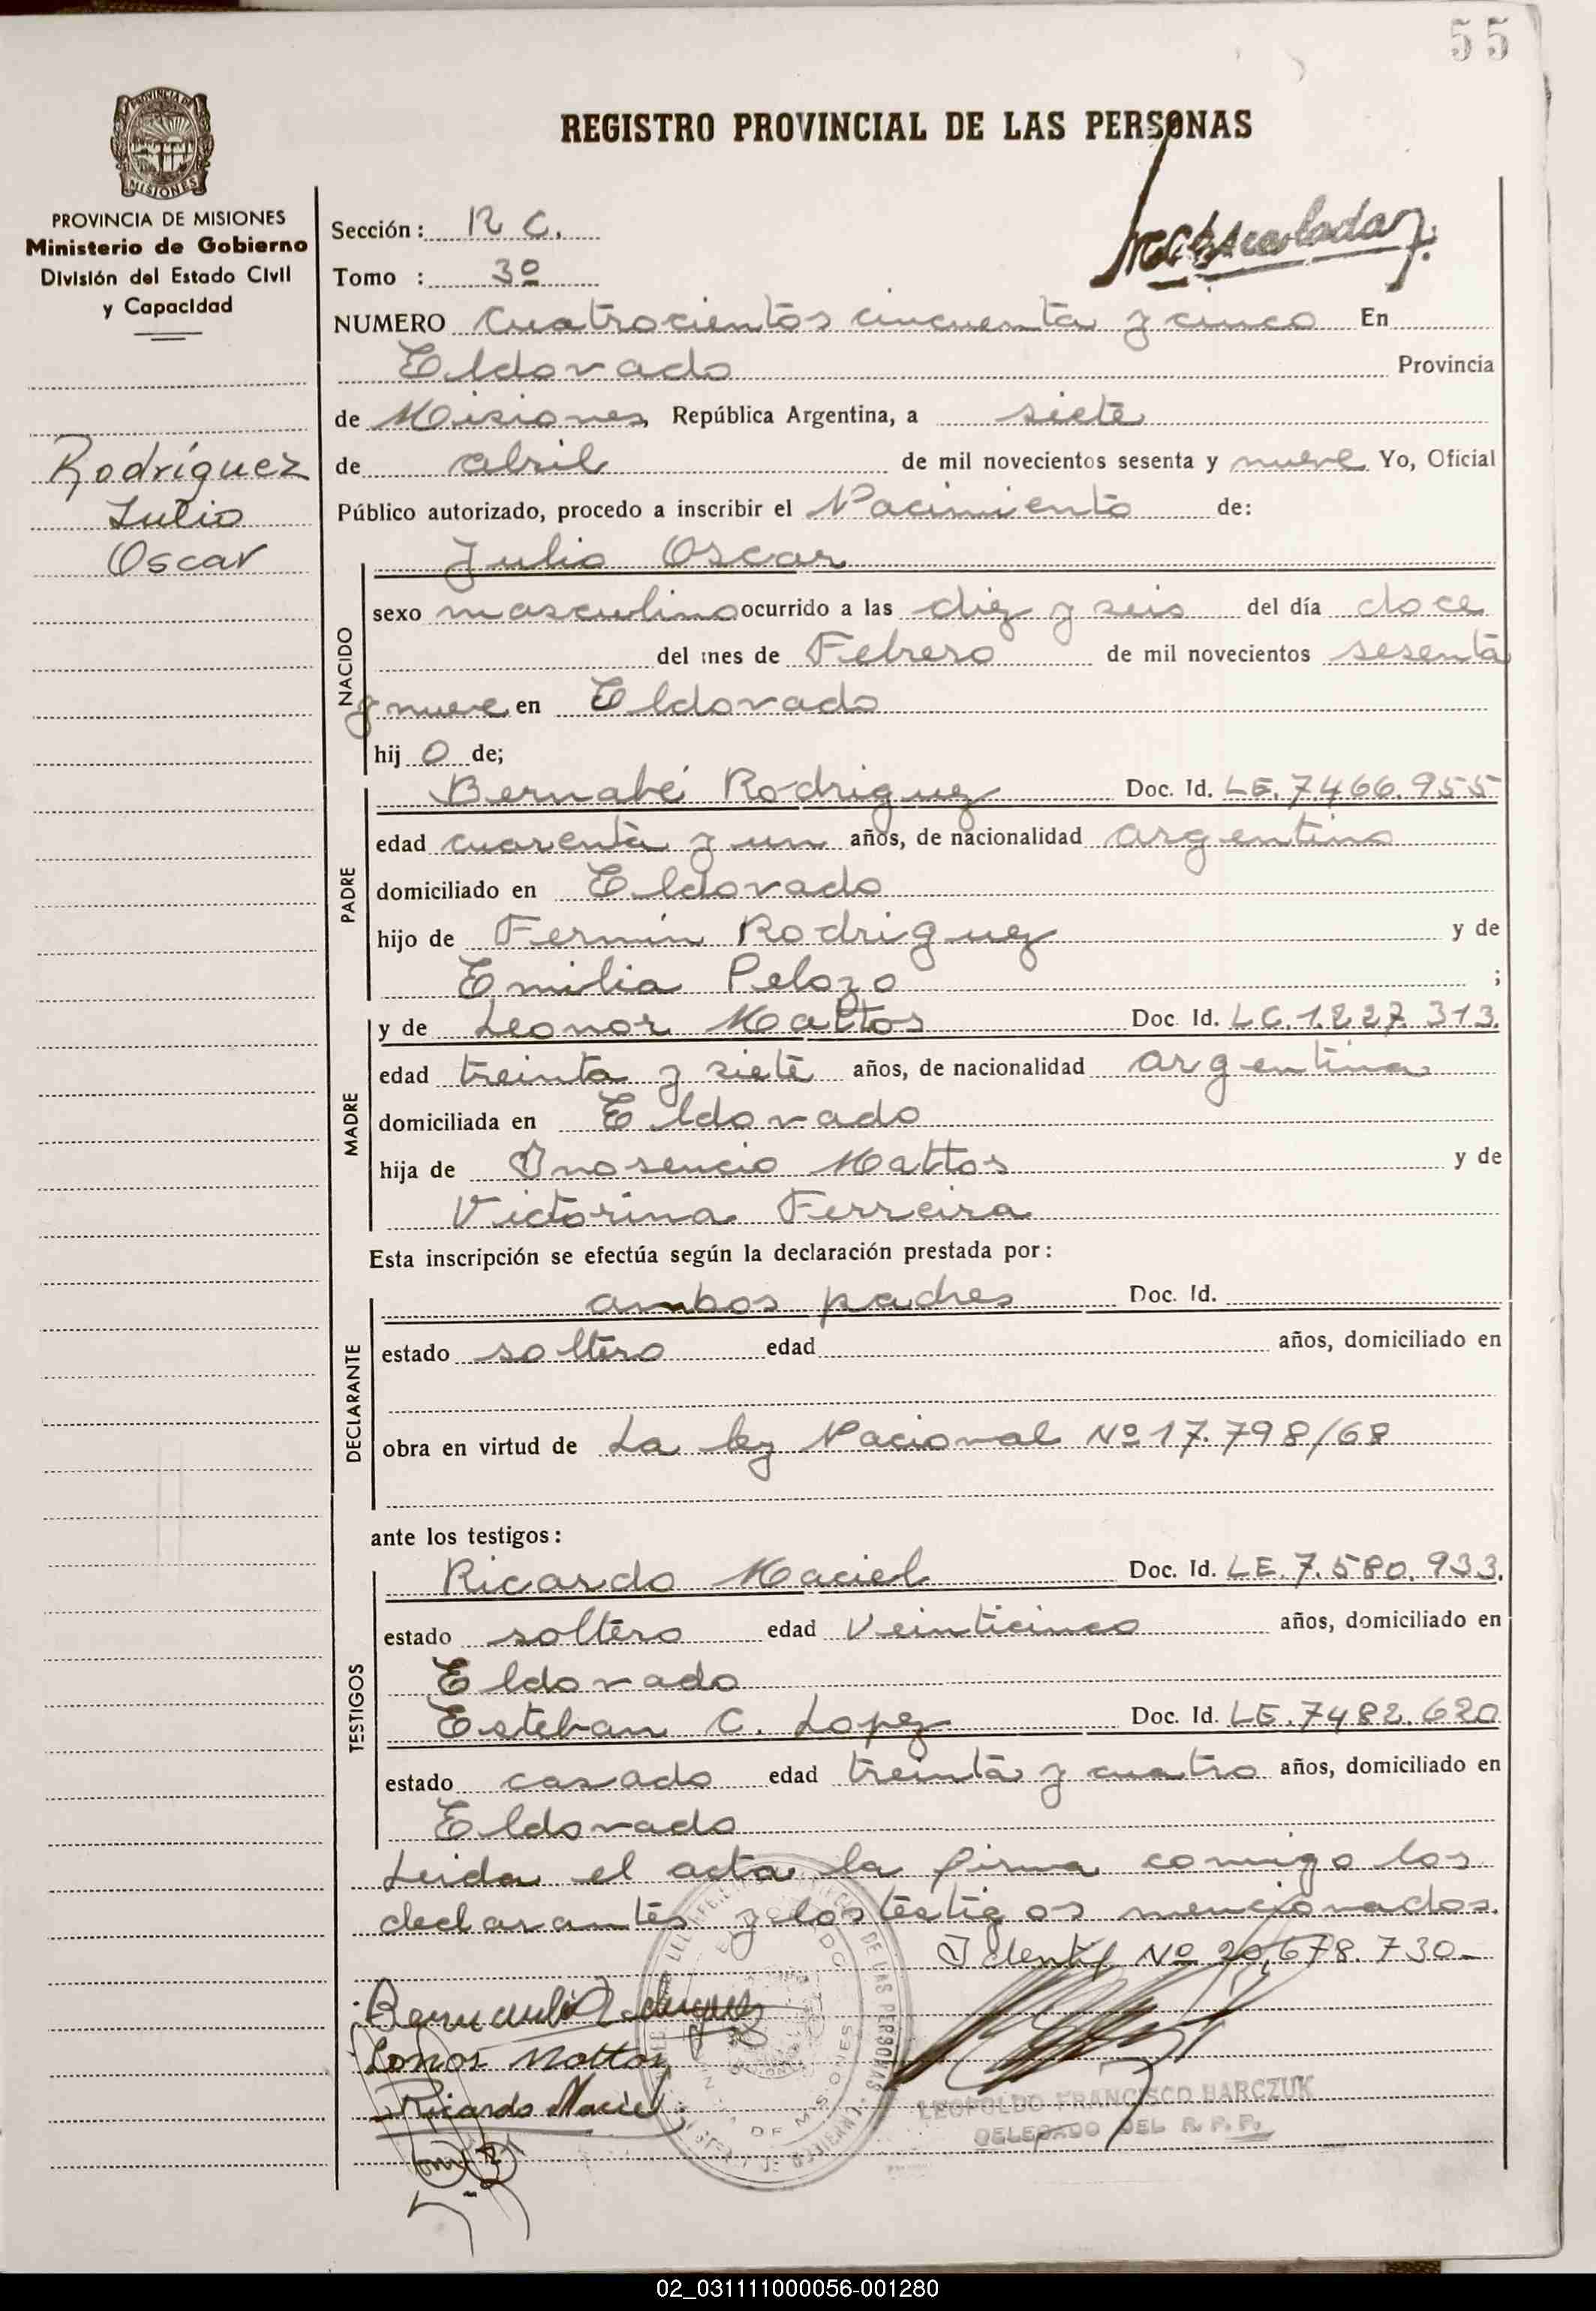 55
PROVINCIA DE
MISIONES
REGISTRO PROVINCIAL DE LAS PERSONAS
PROVINCIA DE MISIONES
Ministerio de Gobierno
División del Estado Civil
y Capacidad
Rodríguez
Julio
Oscar
Sección: R C.
Tomo : 3º
NUMERO Cuatrocientos cincuenta y cinco En
Eldorado Provincia
de Misiones República Argentina, a siete
de abril de mil novecientos sesenta y nueve Yo, Oficial
Público autorizado, procedo a inscribir el Nacimiento de:
Julio Oscar
NACIDO
sexo masculino ocurrido a las diez y seis del día doce
del mes de Febrero de mil novecientos sesenta
y nueve en Eldorado
hij o de;
Bernabé Rodriguez Doc. Id. LE. 7.466.955
PADRE
edad cuarenta y un años, de nacionalidad argentino
domiciliado en Eldorado
hijo de Fermin Rodriguez y de
Emilia Pelozo ;
y de Leonor Mattos Doc. Id. LC. 1.227.313.
MADRE
edad treinta y siete años, de nacionalidad argentina
domiciliada en Eldorado
hija de Inosencio Mattos y de
Victorina Ferreira
Esta inscripción se efectúa según la declaración prestada por:
ambos padres Doc. Id.
DECLARANTE
estado soltero edad años, domiciliado en
obra en virtud de La ley Nacional Nº 17.798/68
ante los testigos:
Ricardo Maciel Doc. Id. LE. 7.580.933.
TESTIGOS
estado soltero edad Veinticinco años, domiciliado en
Eldorado
Esteban C. Lopez Doc. Id. LE. 7482.620
estado casado edad treinta y cuatro años, domiciliado en
Eldorado
Leida el acta la firma comigo los
declarantes y los testigos mencionados.
Identif Nº 20.678.730-
Leonor Mattos
Ricardo Maciel
LEOPOLDO FRANCISCO HARCZUK
DELEGADO DEL R. P. P.
02_031111000056-001280